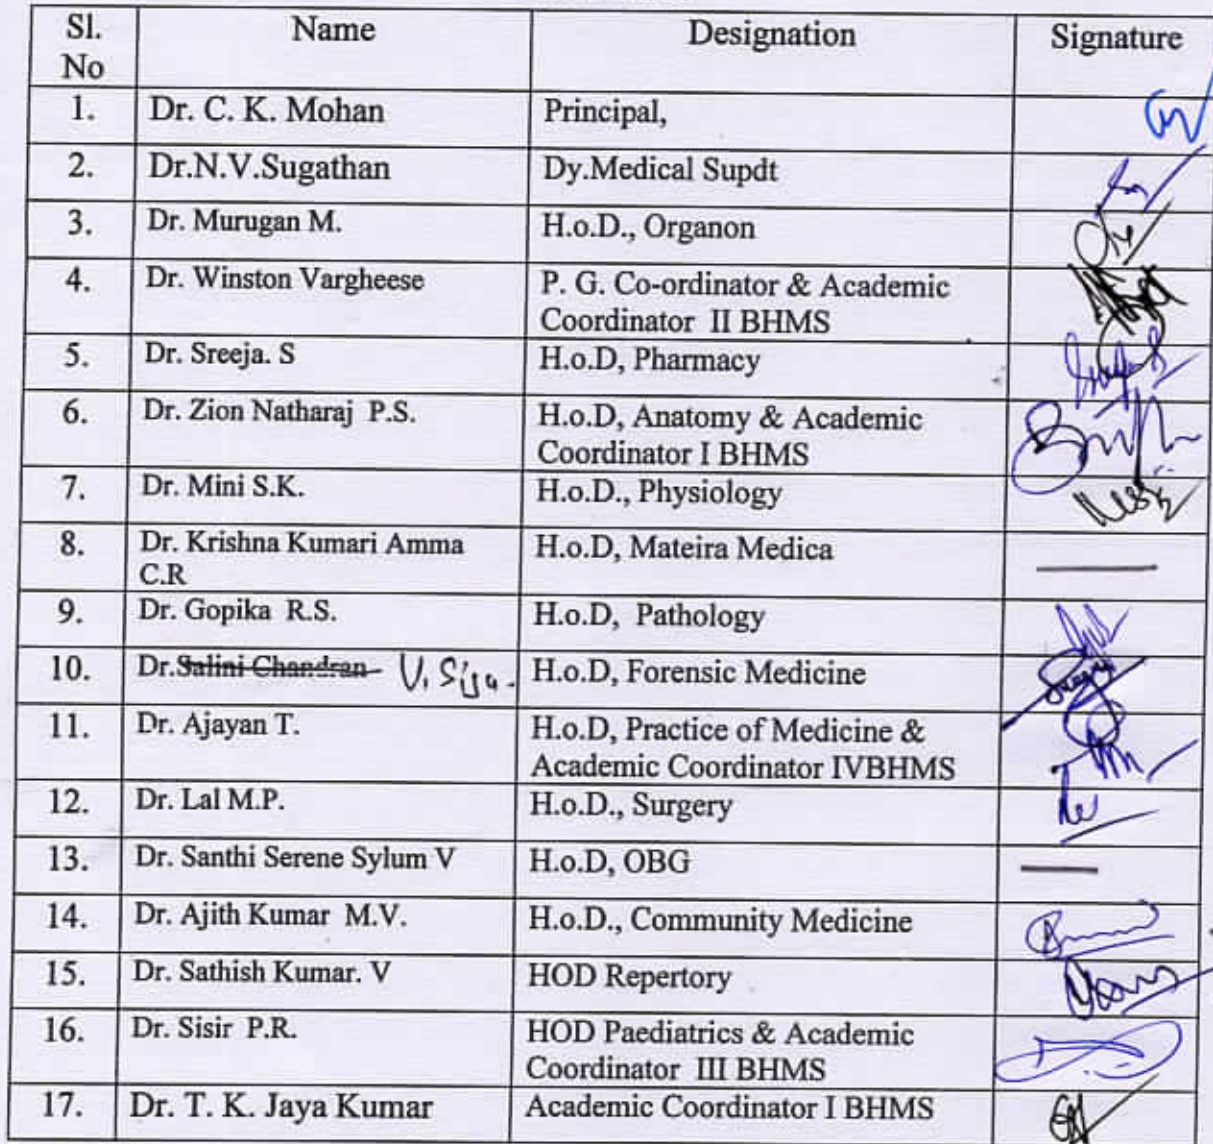 Sl. No Name Designation Signature
1. Dr. C. K. Mohan Principal,
2. Dr.N.V.Sugathan Dy.Medical Supdt
3. Dr. Murugan M. H.o.D., Organon
4. Dr. Winston Vargheese P. G. Co-ordinator & Academic
Coordinator II BHMS
5. Dr. Sreeja. S H.o.D, Pharmacy
6. Dr. Zion Natharaj P.S. H.o.D, Anatomy & Academic
Coordinator I BHMS
7. Dr. Mini S.K. H.o.D., Physiology
8. Dr. Krishna Kumari Amma H.o.D, Mateira Medica
C.R
9. Dr. Gopika R.S. H.o.D, Pathology
10. Dr.Salini Chandran H.o.D, Forensic Medicine
11. Dr. Ajayan T. H.o.D, Practice of Medicine &
Academic Coordinator IVBHMS
12. Dr. Lal M.P. H.o.D., Surgery
13. Dr. Santhi Serene Sylum V H.o.D, OBG
14. Dr. Ajith Kumar M.V. H.o.D., Community Medicine
15. Dr. Sathish Kumar. V HOD Repertory
16. Dr. Sisir P.R. HOD Paediatrics & Academic
Coordinator III BHMS
17. Dr. T. K. Jaya Kumar Academic Coordinator I BHMS